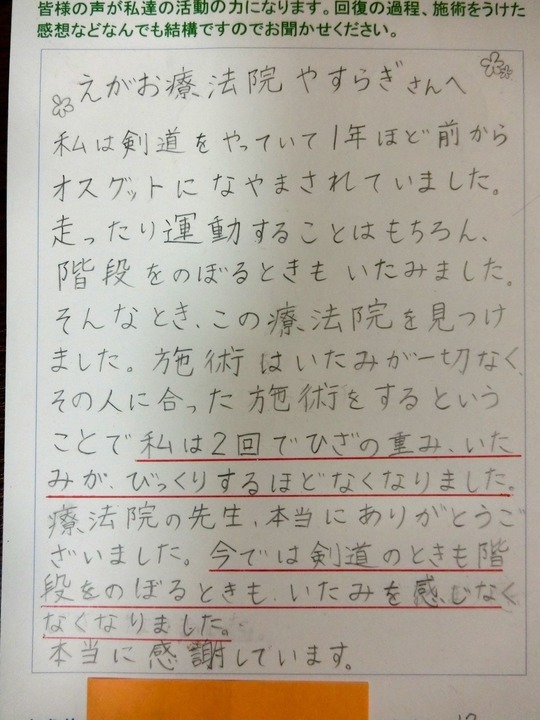 皆様の声が私達の活動の力になります。回復の過程、施術をうけた
感想などなんでも結構ですのでお聞かせください。
えがお療法院 やすらぎさんへ
私は剣道をやっていて1年ほど前から
オスグットになやまされていました。
走ったり運動することはもちろん、
階段をのぼるときもいたみました。
そんなとき、この療法院を見つけ
ました。施術はいたみが一切なく、
その人に合った施術をするという
ことで私は2回でひざの重み、いた
みが、びっくりするほどなくなりました。
療法院の先生、本当にありがとうご
ざいました。今では剣道のときも階
段をのぼるときも、いたみを感じなく
なくなりました。
本当に感謝しています。